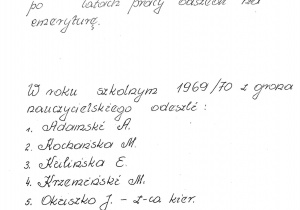 po latach pracy odszedł na
emeryturę.
W roku szkolnym 1969/70 z grona
nauczycielskiego odeszli:
1. Adamski A.
2. Kochańska M.
3. Kulińska E.
4. Krzemiński M.
5. Okuszko J. - z-ca kier.